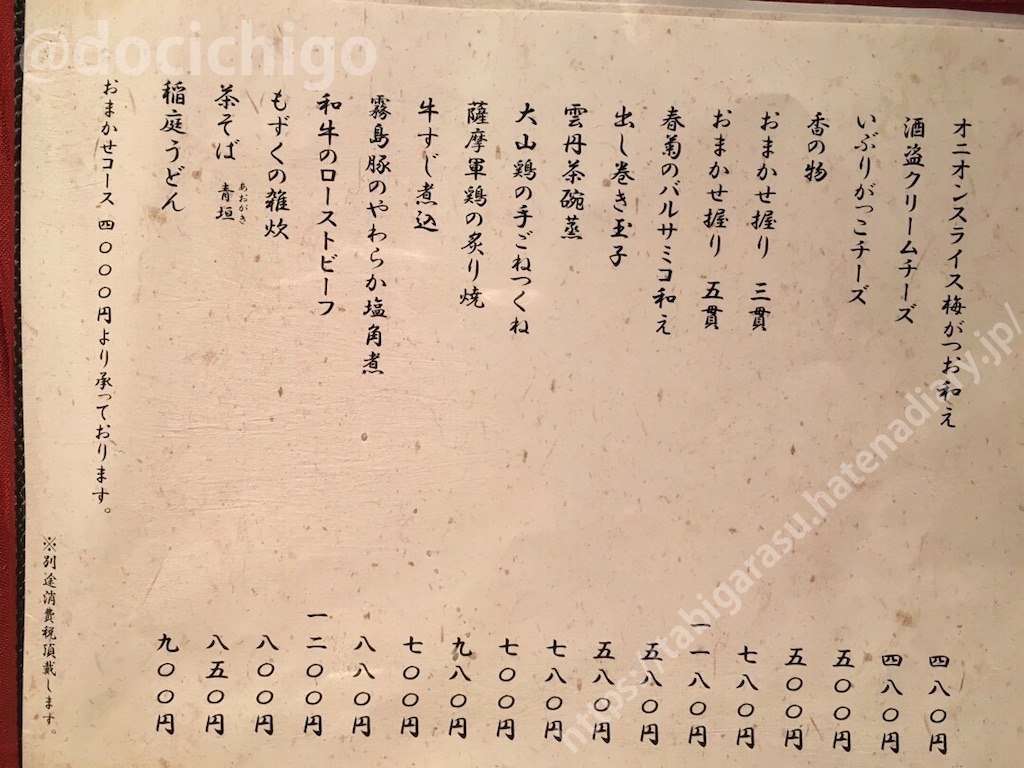 @docichigo
オニオンスライス梅がつお和え 四八〇円
酒盗クリームチーズ 四八〇円
いぶりがっこチーズ 五〇〇円
香の物 五〇〇円
おまかせ握り 三貫 七八〇円
おまかせ握り 五貫 一一八〇円
春菊のバルサミコ和え 五八〇円
出し巻き玉子 五八〇円
雲丹茶碗蒸 七八〇円
大山鶏の手ごねつくね 七〇〇円
薩摩軍鶏の炙り焼 九八〇円
牛すじ煮込 七〇〇円
霧島豚のやわらか塩角煮 八八〇円
和牛のローストビーフ 一二〇〇円
もずくの雑炊 八〇〇円
茶そば 青垣 あおがき 八五〇円
稲庭うどん 九〇〇円
おまかせコース 四〇〇〇円より承っております。
※別途消費税頂戴します。
https://itabigarasu.hatenadiary.jp/